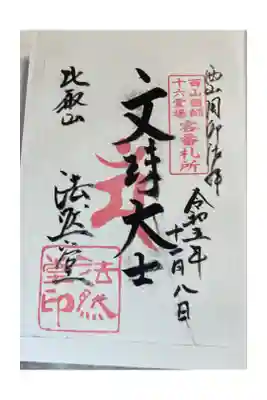 西山国師遺跡
西山国師
十六霊場
客番札所
令和五年
十一月八日
文殊大士
比叡山
法然堂
法然
堂印